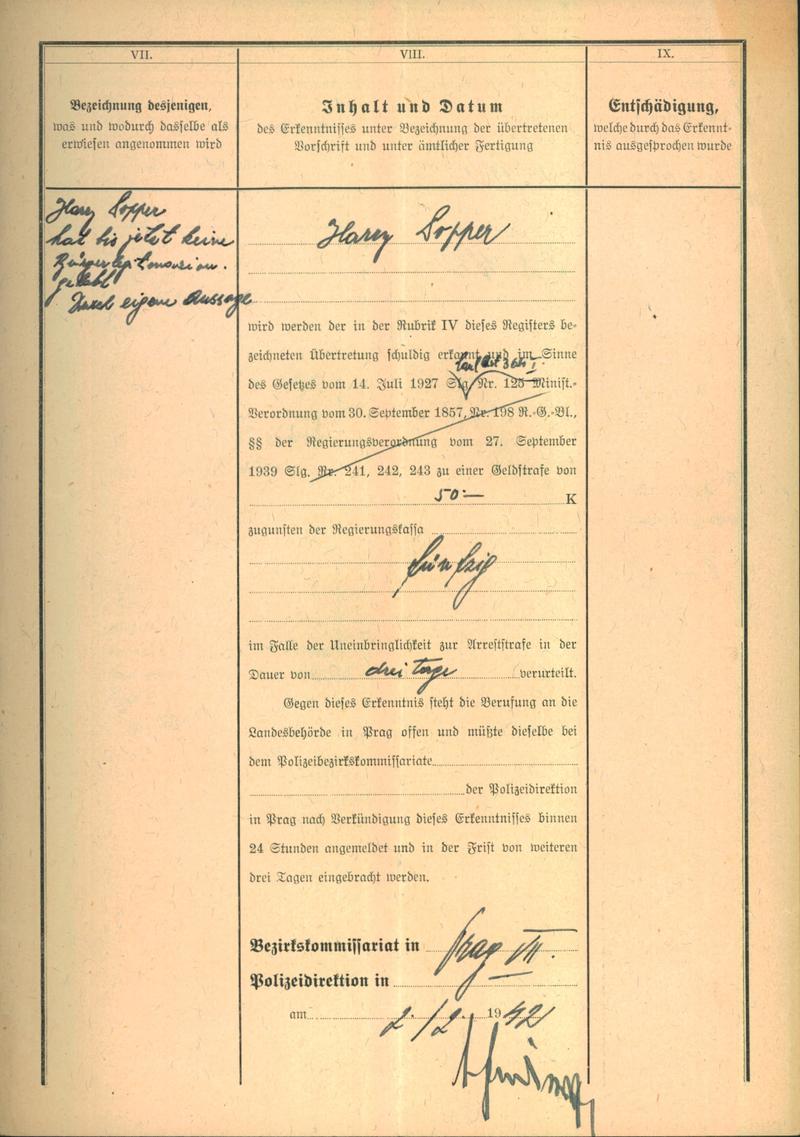 VII.
Bezeichnung desjenigen,
was und wodurch dasselbe als
erwiesen angenommen wird
Harry Popper
hat bis jetzt keine
eigene Aussage
VIII.
Inhalt und Datum
des Erkenntnisses unter Bezeichnung der übertretenen
Vorschrift und unter ämtlicher Fertigung
Harry Popper
wird werden der in der Rubrik IV dieses Registers be-
zeichneten Übertretung schuldig erkannt und im Sinne
des Gesetzes vom 14. Juli 1927 Slg. Nr. 125 Minist.-
Verordnung vom 30. September 1857, Nr. 198 R.-G.-Bl.,
§§ der Regierungsverordnung vom 27. September
1939 Slg. Nr. 241, 242, 243 zu einer Geldstrafe von
50·— K
zugunsten der Regierungskassa
fünfzig
im Falle der Uneinbringlichkeit zur Arreststrafe in der
Dauer von drei Tage verurteilt.
Gegen dieses Erkenntnis steht die Berufung an die
Landesbehörde in Prag offen und müßte dieselbe bei
dem Polizeibezirkskommissariate
der Polizeidirektion
in Prag nach Verkündigung dieses Erkenntnisses binnen
24 Stunden angemeldet und in der Frist von weiteren
drei Tagen eingebracht werden.
Bezirkskommissariat in Prag VII.
Polizeidirektion in
am 2./2. 1942
IX.
Entschädigung,
welche durch das Erkennt-
nis ausgesprochen wurde